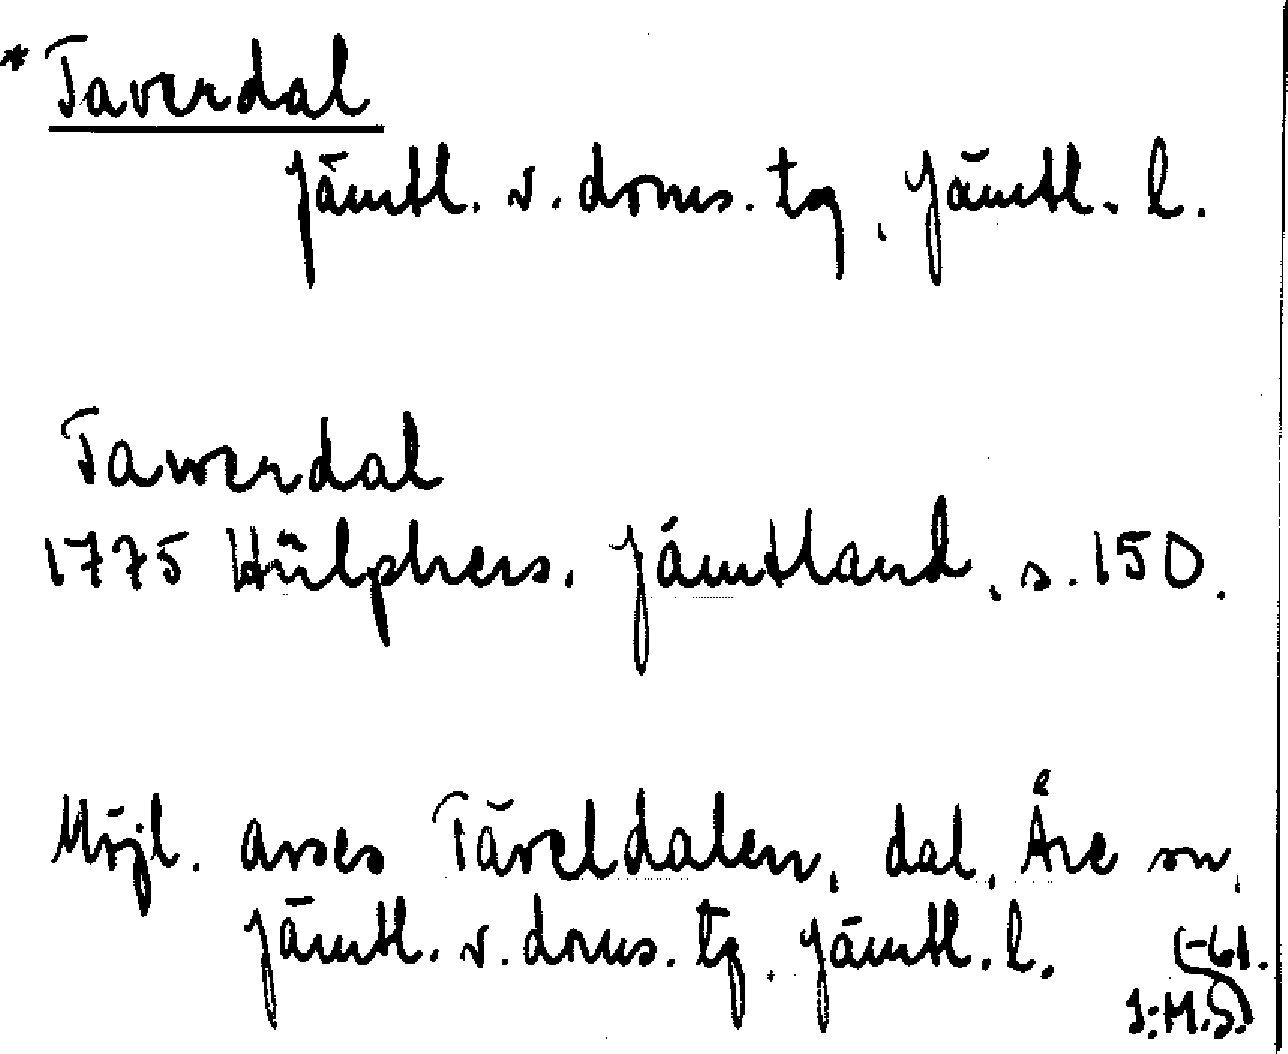 * Taverdal
Jämtl. v. doms. tg, Jämtl. l.
Tawerdal
1775 Hülphers. Jämtland, s. 150.
Möjl. avses Täveldalen, dal, Åre sn,
Jämtl. v. doms. tg, Jämtl. l. (-61.
I:M.S.)